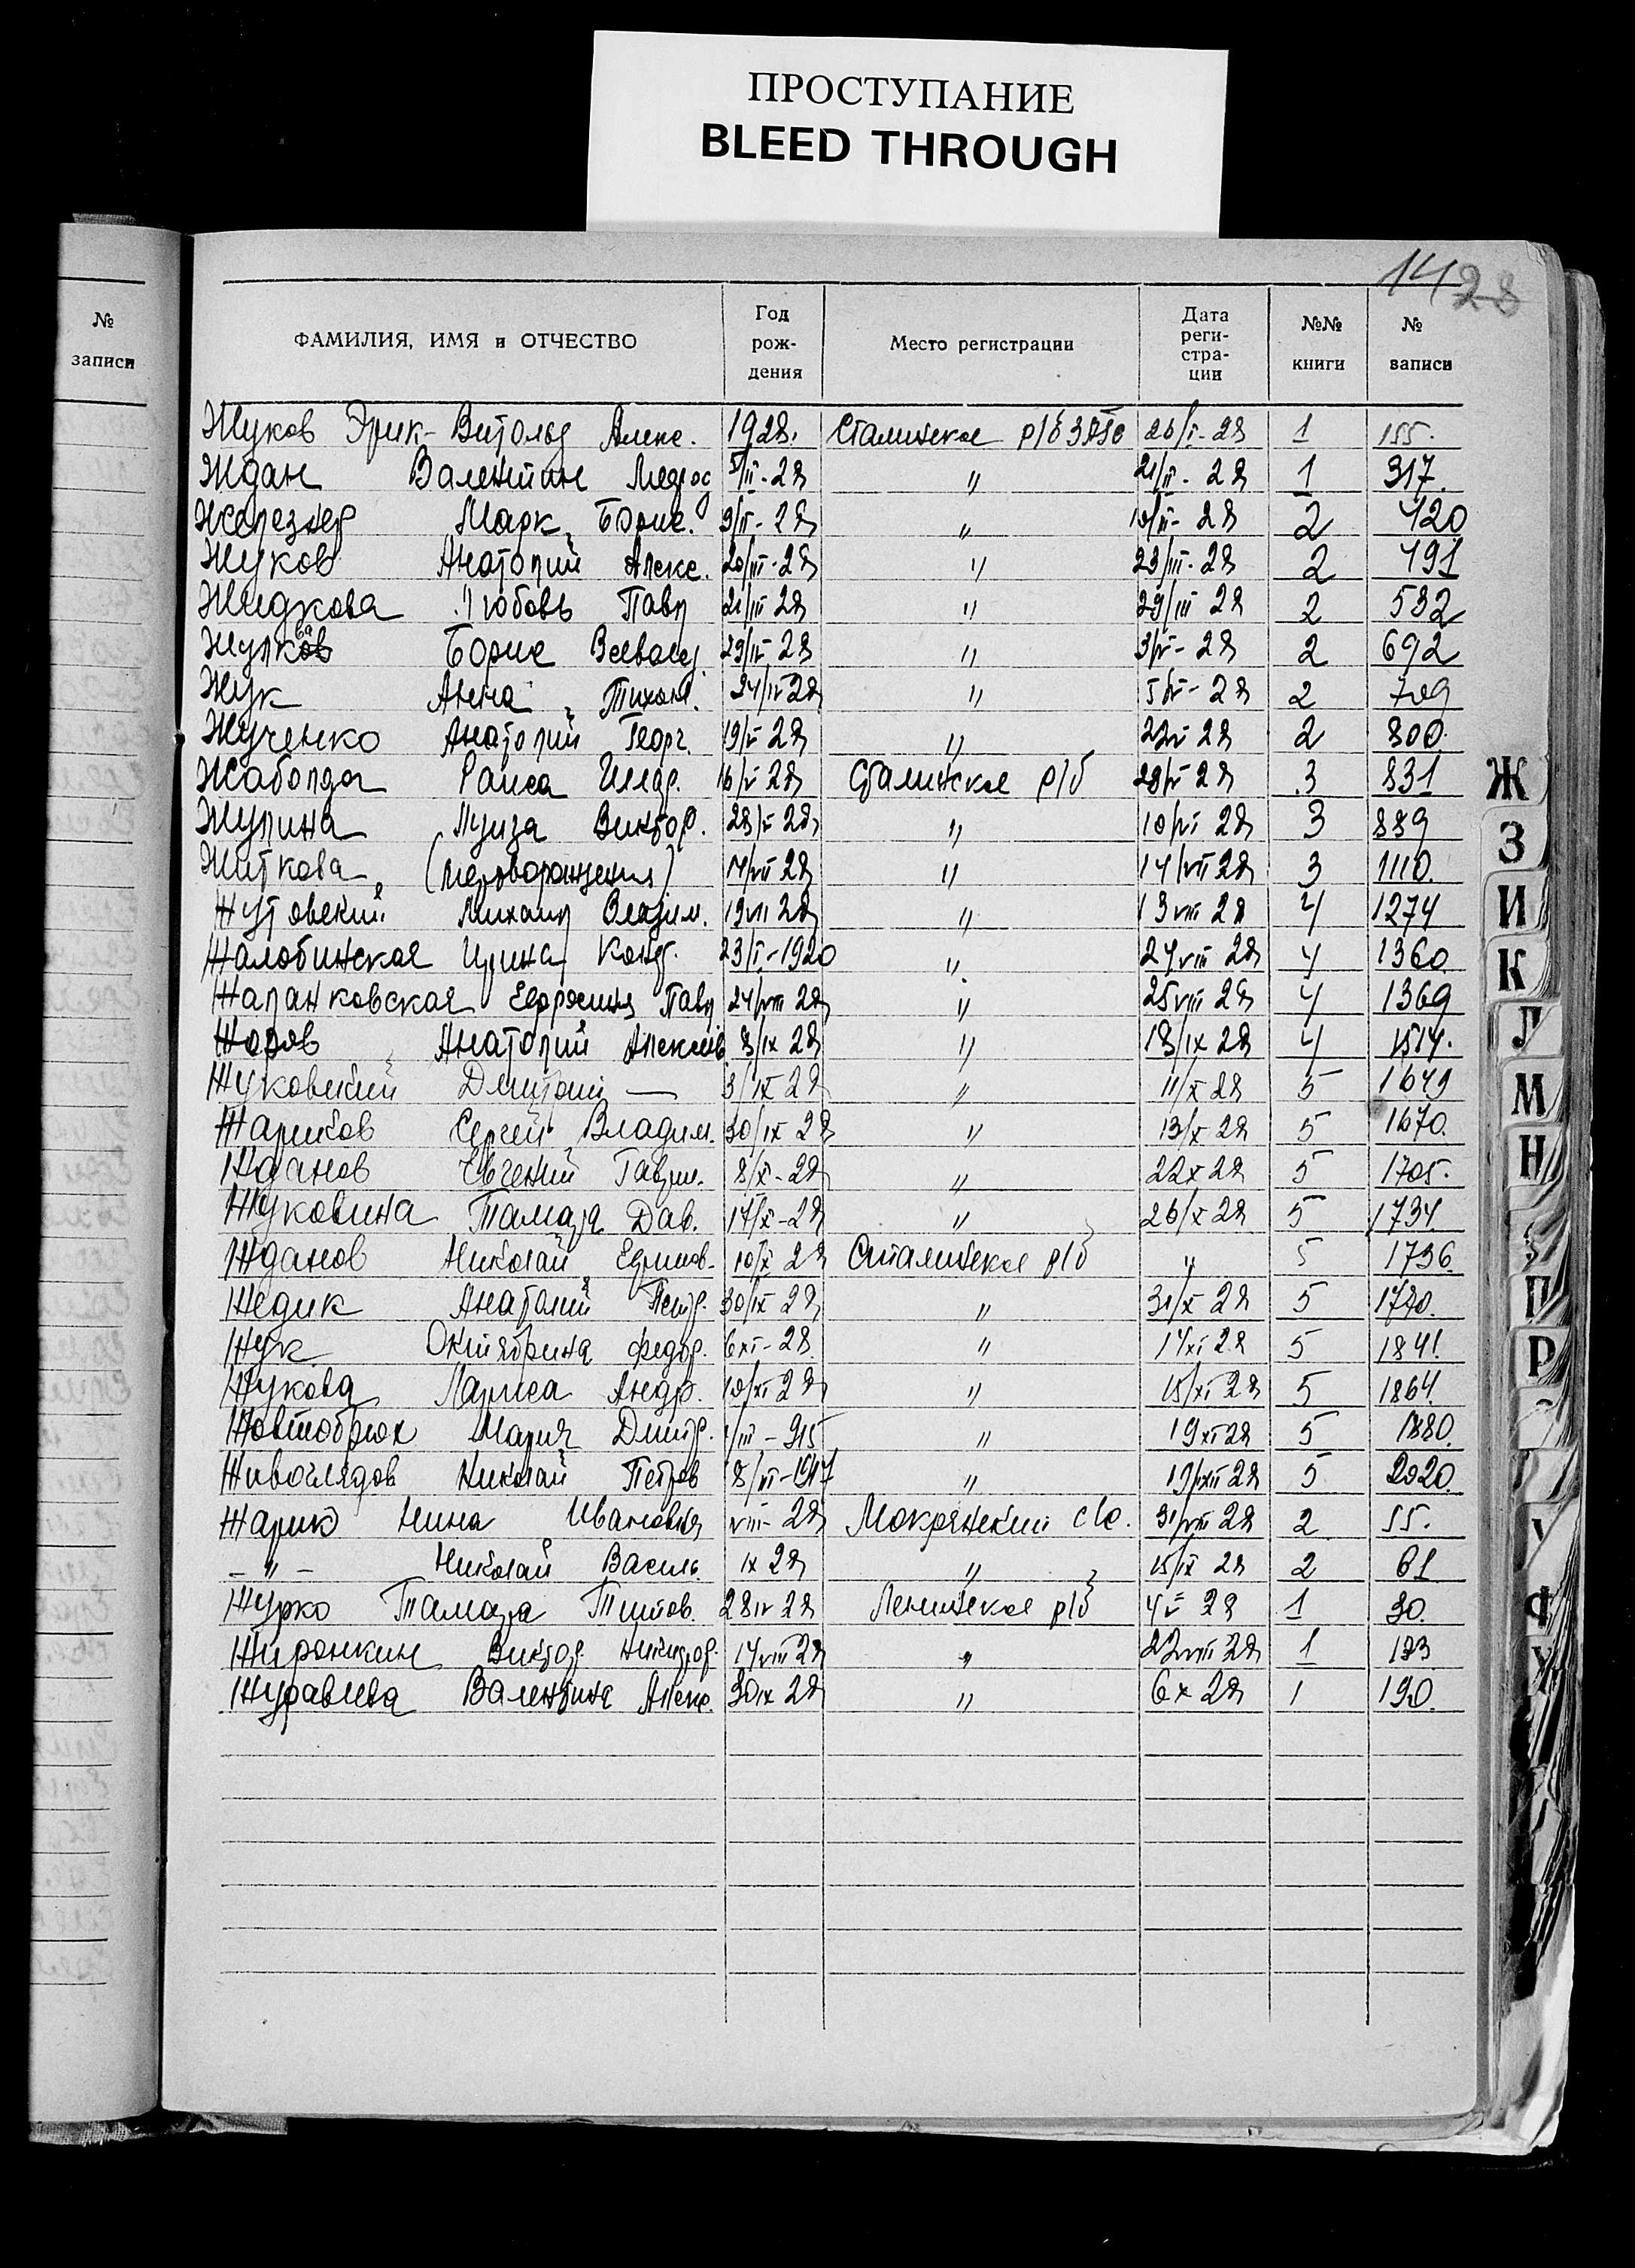 ПРОСТУПАНИЕ
BLEED THROUGH
1428
№ записи
ФАМИЛИЯ, ИМЯ и ОТЧЕСТВО Год рождения Место регистрации Дата регистрации №№ книги № записи
Жуков Эрик-Витольд Алекс. 1928. Сталинское р/б 26/I-28 1 155.
Ждан Валентин 21/II-28 1 317.
Железняр Марк Борис. 9/II-28 " 2 420
Жуков Анатолий Алекс. 20/III-28 " 23/III-28 2 491
Жидкова Любовь Павл 21/III 28 " 29/III 28 2 532
Борис Всевол 29/IV 28 " 3/V-28 2 692
Жук Анна Тихон. 24/IV 28 " 5/V-28 2 709
Жученко Анатолий Георг. 19/V 28 " 22V 28 2 800.
Жаболда Раиса 16/V 28 Сталинское р/б 28/V 28 3 831
Жулина Луиза Виктор. 28/V 28 " 10/VI 28 3 889
Житкова (мертворожденная) 14/VII 28 " 14/VII 28 3 1110.
Жутовский Михаил Владим. 19VII 28 " 13VIII 28 4 1274
Жалобинская Ирина Конд. 23/I-1920 " 24VIII 28 4 1360
Жапанковская Ефросиния Павл 24/VIII 28 " 25VIII 28 4 1369
Жоров Анатолий Алексеев 8/IX 28 " 18/IX 28 4 1514.
Жуковский Дмитрий — 3/IX 28 " 11/X 28 5 1649
Жариков Сергей Владим. 30/IX 28 " 13/X 28 5 1670.
Жданов Евгений Гаврил. 8/X-28 " 22X 28 5 1705.
Жуковина Тамара Дав. 17/X-28 " 26/X 28 5 1734
Жданов Николай Ефимов. 10/X 28 Сталинское р/б " 5 1736.
Жедик Анатолий Петр. 30/IX 28 " 31/X 28 5 1780.
Жук Октябрина Федор. 6XI-28. " 14XI 28 5 1841.
Жукова Лариса Андр. 10/XI 28 " 15/XI 28 5 1864.
Жовтобрюх Мария Дмитр. 1/III-915 " 19XI 28 5 1880.
Живоглядов Николай Петров 8/VI-1917 " 19/XII 28 5 2020.
Жарик Нина Ивановна VIII-28 Мокрянский с/с. 31/VIII 28 2 55.
-"- Николай Василь. IX 28 " 15/IX 28 2 61
Журко Тамара Титов. 28IV 28 Ленинское р/б 4V 28 1 30.
Жиронкин Виктор. Никифор. 14VIII 28 " 22VIII 28 1 183
Журавлева Валентина Алекс. 30IX 28 " 6X 28 1 190.
Ж
З
И
К
Л
М
Н
П
Р
У
Ф
Х